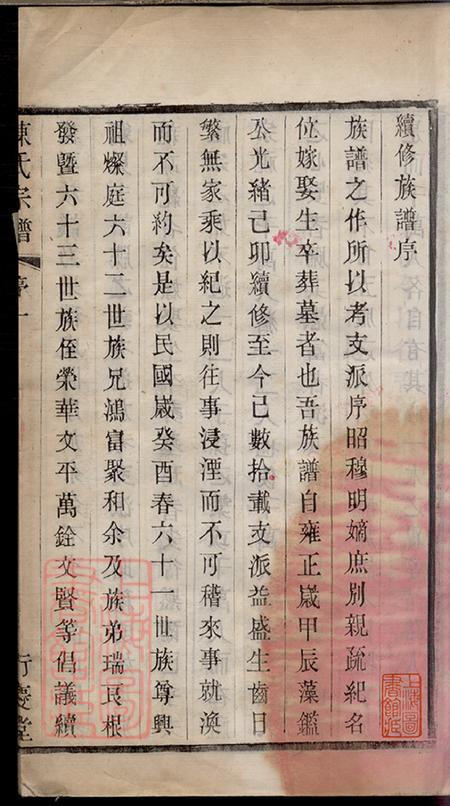 續修族譜序
族譜之作所以考支派序昭穆明嫡庶別親疏紀名
位嫁娶生卒葬墓者也吾族譜自雍正歲甲辰藻鑑
公光緒己卯續修至今已數拾載支派益盛生齒日
繁無家乘以紀之則往事浸湮而不可稽來事就渙
而不可約矣是以民國歲癸酉春六十一世族尊興
祖燦庭六十二世族兄鴻富聚和余及族弟瑞民根
發暨六十三世族侄榮華文平萬銓文賢等倡議續
陳氏宗譜 序 一 行慶堂
上海圖書館藏